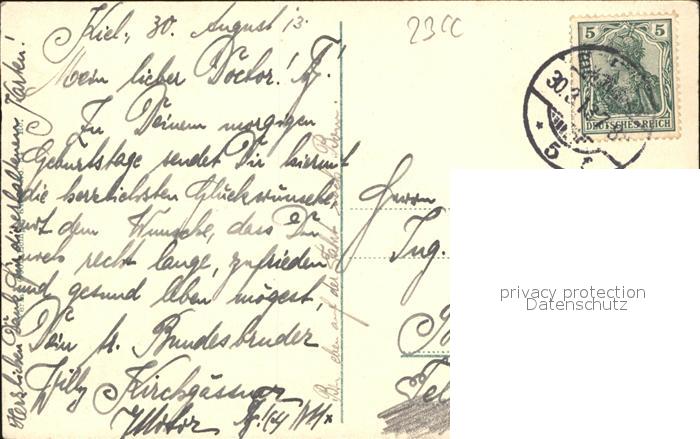 Kiel, 30. August 13.
23CC
Mein lieber Doctor!
Zu Deinem morgigen
Geburtstage sendet Dir hiermit
die herzlichsten Glückwünsche,
mit dem Wunsche, dass Du
noch recht lange, zufrieden
und gesund leben mögest,
Dein Bundesbruder
Willy Kirchgässner
Herzlichen Dank für die erhaltenen Karten!
Bin eben auf der Fahrt nach Bonn.
5 5
DEUTSCHES REICH
30.8.13
* 5
Herrn
Ing.
Tel
privacy protection
Datenschutz